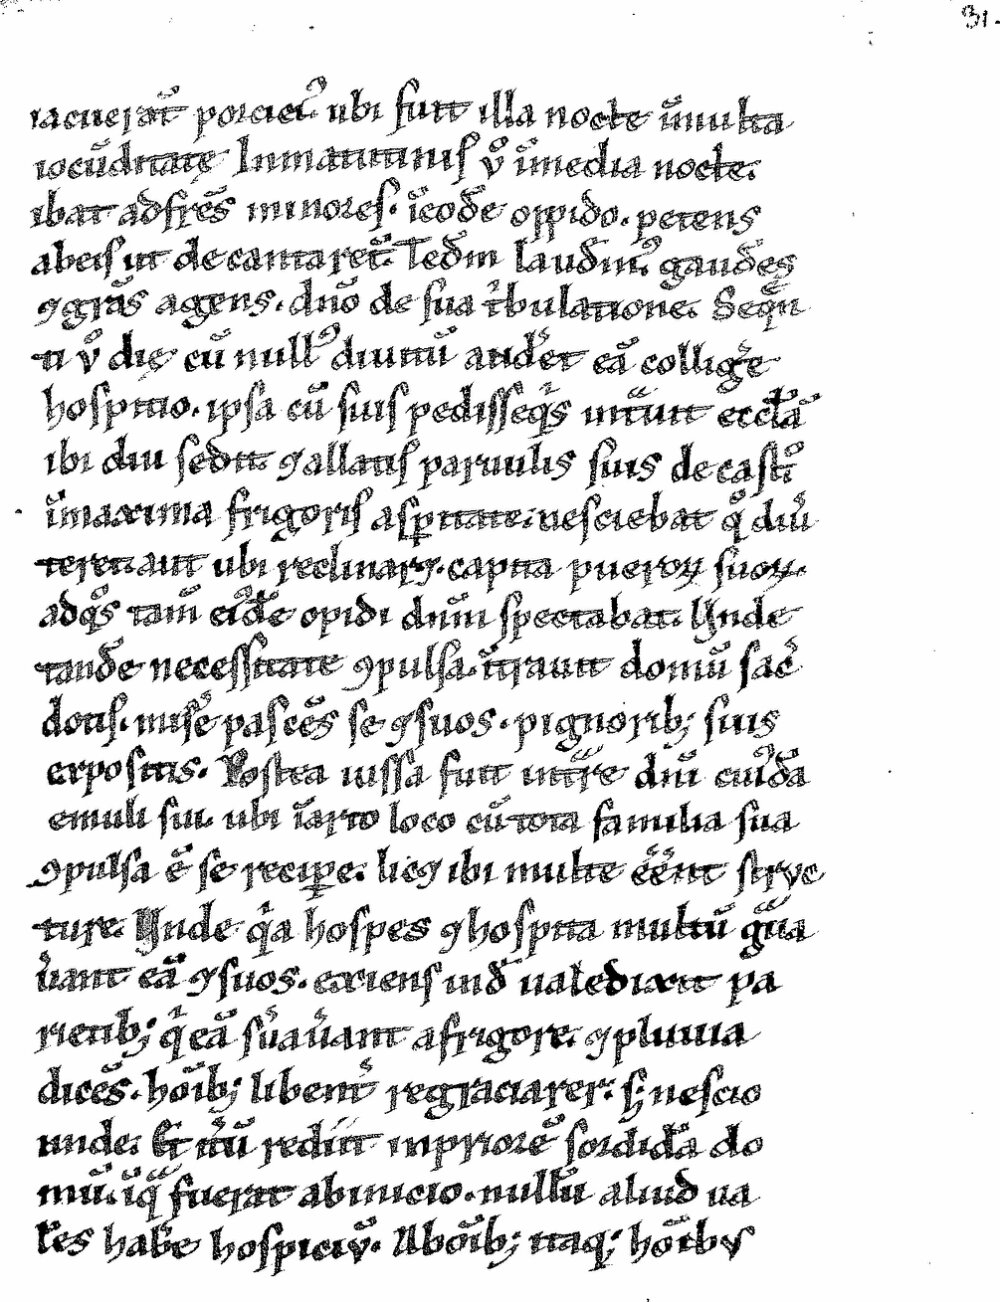 31.
iacuerāt porcicī ubi fuit illa nocte ī multa
iocūditate In matutinis ū ī media nocte.
ibat ad frēs minores. ī eodē oppido. petens
ab eis ut decantaret̄. Te dm̄ laudam᾽. gaudēs
ꝯ grās agens. dn̄o de sua tͥbulatione. Seqn̄
ti ū die cū null᾽ diuitū audet̄ eā collige᷑
hospitio. ipsa cū suis pedisseqͥs intͣuit eccl̄am
ibi diu sedit. ꝯ allatis paruulis suis de castͦ
ī maxima frigoris asꝑitate. nesciebat qͦ diu᷑
teret. aut ubi reclinarꝫ. capita pueroꝝ suoꝝ.
ad qͦs tam̄ eiꝰdē opidi dn̄m spectabat. Unde
tandē necessitate ꝯpulsa. intͣuit domū sac᷑
dotis. mise᷑ pascēs se ꝯ suos. pignoribꝫ suis
expositis. Postea iussa fuit intͣre dn̄i cuiꝰdā
emuli sui. ubi ī arto loco cū tota familia sua
ꝯpulsa ē se reciꝑe. licꝫ ibi multe eēnt struc
ture. Unde qͥa hospes ꝯ hospita multū gͣua
u᷑ant eā ꝯ suos. exiens ind̄ ualedixit pa
rietibꝫ qͥ eā su᷑au᷑ant a frigore. ꝯ pluuia
dicēs. hōibꝫ libent᷑ regraciarer. sꝫ nescio
unde. Et itͤū rediit in priorē sordidā do
mū. ī qͣ fuerat ab inicio. nullū aliud ua
lēs habe᷑ hospiciū. Ab oībꝫ itaqꝫ hōibus